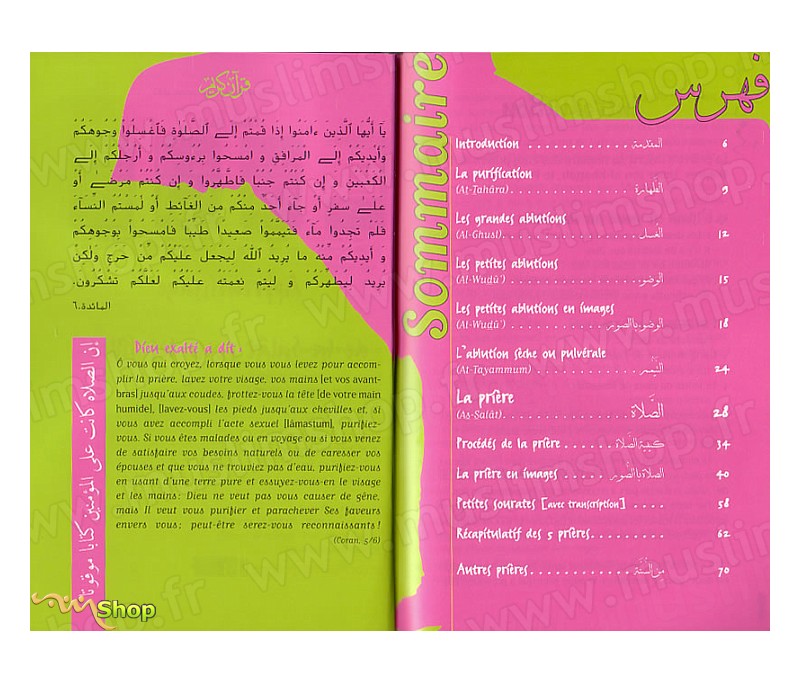 قرآن كريم
يَا أَيُّهَا الَّذِينَ ءَامَنُوا إِذَا قُمْتُمْ إِلَى الصَّلَوٰةِ فَاغْسِلُوا وُجُوهَكُمْ
وَأَيْدِيَكُمْ إِلَى الْمَرَافِقِ وَ امْسَحُوا بِرُءُوسِكُمْ وَ أَرْجُلَكُمْ إِلَى
الْكَعْبَيْنِ وَ إِن كُنتُمْ جُنُبًا فَاطَّهَّرُوا وَ إِن كُنتُم مَرْضَى أَو
عَلَى سَفَرٍ أَو جَاءَ أَحَدٌ مِنكُم مِنَ الْغَائِطِ أَو لَمَسْتُمُ النِّسَاءَ
فَلَم تَجِدُوا مَاءً فَتَيَمَّمُوا صَعِيدًا طَيِّبًا فَامْسَحُوا بِوُجُوهِكُمْ
وَ أَيْدِيكُم مِنْهُ مَا يُرِيدُ اللَّهُ لِيَجْعَلَ عَلَيْكُم مِنْ حَرَجٍ وَلَكِنْ
يُرِيدُ لِيُطَهِّرَكُمْ وَ لِيُتِمَّ نِعْمَتَهُ عَلَيْكُمْ لَعَلَّكُمْ تَشْكُرُونَ.
المائدة.٦
إن الصلاة كانت على المؤمنين كتابا موقوتا
Dieu exalté a dit :
Ô vous qui croyez, lorsque vous vous levez pour accom-
plir la prière, lavez votre visage, vos mains [et vos avant-
bras] jusqu'aux coudes, frottez-vous la tête [de votre main
humide], [lavez-vous] les pieds jusqu'aux chevilles et, si
vous avez accompli l'acte sexuel [lâmastum], purifiez-
vous. Si vous êtes malades ou en voyage ou si vous venez
de satisfaire vos besoins naturels ou de caresser vos
épouses et que vous ne trouviez pas d'eau, purifiez-vous
en usant d'une terre pure et essuyez-vous-en le visage
et les mains: Dieu ne veut pas vous causer de gêne,
mais Il veut vous purifier et parachever Ses faveurs
envers vous; peut-être serez-vous reconnaissants!
(Coran, 5/6)
Shop
Sommaire
فهرس
Introduction . . . . . . . . . . . . . المقدمة 6
La purification
(Aṭ-Ṭahâra) . . . . . . . . . . . . . الطّهارة 9
Les grandes ablutions
(Al-Ghusl) . . . . . . . . . . . . . الغسل 12
Les petites ablutions
(Al-Wuḍû') . . . . . . . . . . . . . الوضوء 15
Les petites ablutions en images
(Al-Wuḍû') . . . . . . . . . الوضوء بالصور 18
L'ablution sèche ou pulvérale
(At-Tayammum) . . . . . . . . . . التّيمّم 24
La prière
(Aṣ-Ṣalât) . . . . . . . . . . . . . الصَّلاة 28
Procédés de la prière . . . . . . كيفية الصّلاة 34
La prière en images . . . . . . الصلاة بالصّور 40
Petites sourates [avec transcription] . . . . 58
Récapitulatif des 5 prières . . . . . . . . . 62
Autres prières . . . . . . . . . . . . من السُّنَّة 70
www.muslimshop.fr